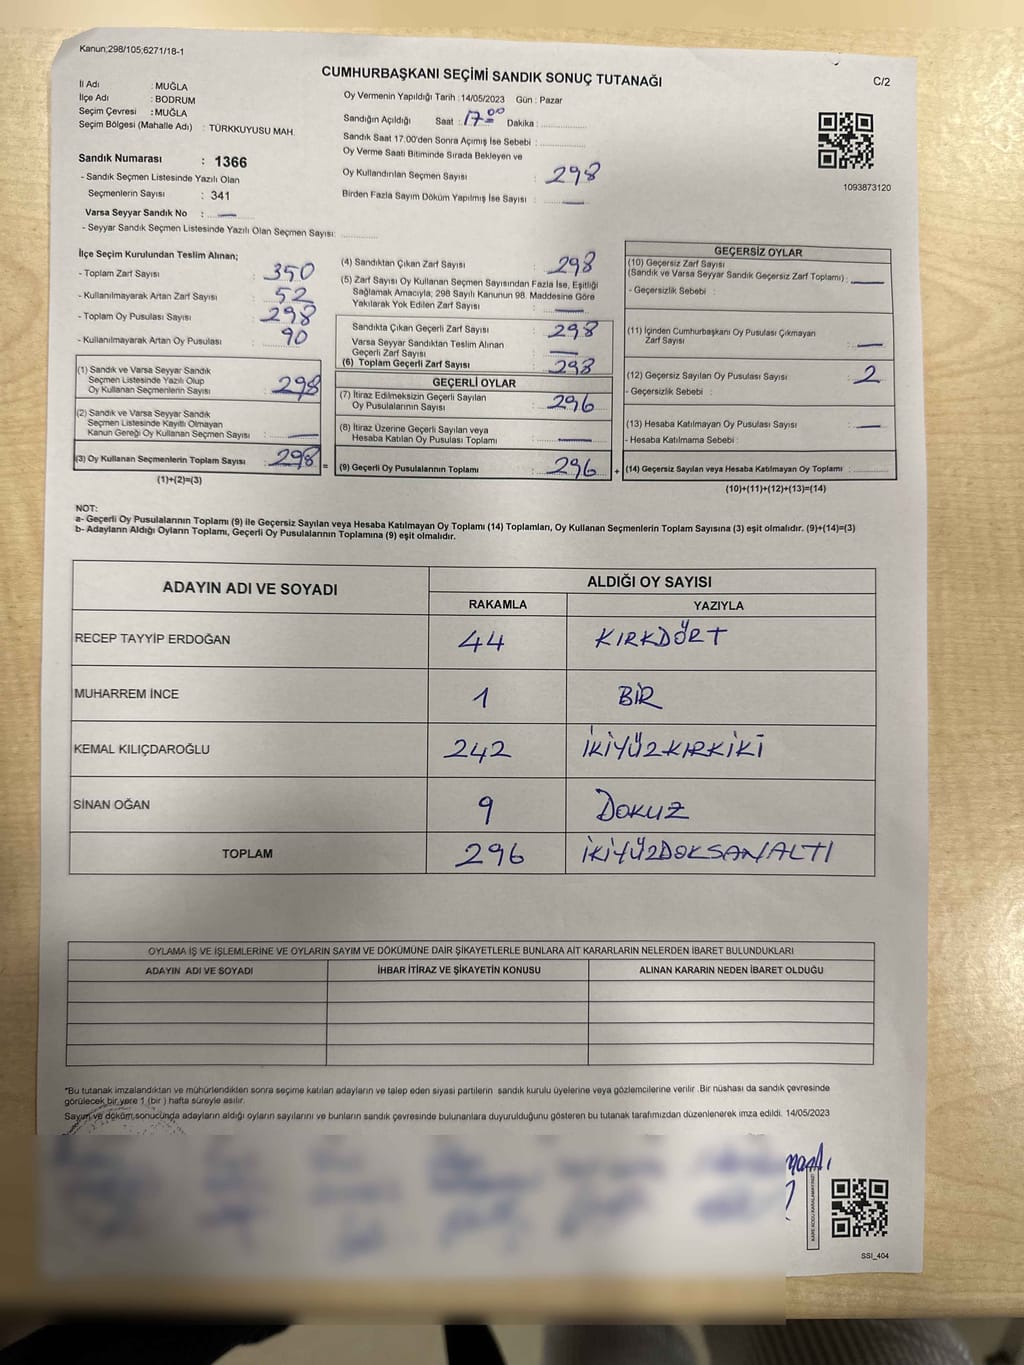 Kanun;298/105;6271/18-1
CUMHURBAŞKANI SEÇİMİ SANDIK SONUÇ TUTANAĞI
C/2
İl Adı : MUĞLA
İlçe Adı : BODRUM
Seçim Çevresi : MUĞLA
Seçim Bölgesi (Mahalle Adı) : TÜRKKUYUSU MAH.
Oy Vermenin Yapıldığı Tarih : 14/05/2023 Gün : Pazar
Sandığın Açıldığı Saat : 17:00 Dakika :
Sandık Saat 17.00'den Sonra Açımış İse Sebebi :
Oy Verme Saati Bitiminde Sırada Bekleyen ve
Oy Kullandırılan Seçmen Sayısı : 298
Birden Fazla Sayım Döküm Yapılmış İse Sayısı : —
1093873120
Sandık Numarası : 1366
- Sandık Seçmen Listesinde Yazılı Olan
Seçmenlerin Sayısı : 341
Varsa Seyyar Sandık No : —
- Seyyar Sandık Seçmen Listesinde Yazılı Olan Seçmen Sayısı:
İlçe Seçim Kurulundan Teslim Alınan;
- Toplam Zarf Sayısı : 350
- Kullanılmayarak Artan Zarf Sayısı : 52
- Toplam Oy Pusulası Sayısı : 298
- Kullanılmayarak Artan Oy Pusulası : 90
(1) Sandık ve Varsa Seyyar Sandık
Seçmen Listesinde Yazılı Olup
Oy Kullanan Seçmenlerin Sayısı : 298
(2) Sandık ve Varsa Seyyar Sandık
Seçmen Listesinde Kayıtlı Olmayan
Kanun Gereği Oy Kullanan Seçmen Sayısı : —
(3) Oy Kullanan Seçmenlerin Toplam Sayısı : 298
(1)+(2)=(3)
(4) Sandıktan Çıkan Zarf Sayısı : 298
(5) Zarf Sayısı Oy Kullanan Seçmen Sayısından Fazla İse, Eşitliği
Sağlamak Amacıyla; 298 Sayılı Kanunun 98. Maddesine Göre
Yakılarak Yok Edilen Zarf Sayısı : —
Sandıkta Çıkan Geçerli Zarf Sayısı : 298
Varsa Seyyar Sandıktan Teslim Alınan
Geçerli Zarf Sayısı : —
(6) Toplam Geçerli Zarf Sayısı : 298
GEÇERLİ OYLAR
(7) İtiraz Edilmeksizin Geçerli Sayılan
Oy Pusulalarının Sayısı : 296
(8) İtiraz Üzerine Geçerli Sayılan veya
Hesaba Katılan Oy Pusulası Toplamı : —
= (9) Geçerli Oy Pusulalarının Toplamı : 296
GEÇERSİZ OYLAR
(10) Geçersiz Zarf Sayısı
(Sandık ve Varsa Seyyar Sandık Geçersiz Zarf Toplamı) : —
- Geçersizlik Sebebi :
(11) İçinden Cumhurbaşkanı Oy Pusulası Çıkmayan
Zarf Sayısı : —
(12) Geçersiz Sayılan Oy Pusulası Sayısı : 2
- Geçersizlik Sebebi :
(13) Hesaba Katılmayan Oy Pusulası Sayısı : —
- Hesaba Katılmama Sebebi :
+ (14) Geçersiz Sayılan veya Hesaba Katılmayan Oy Toplamı :
(10)+(11)+(12)+(13)=(14)
NOT:
a- Geçerli Oy Pusulalarının Toplamı (9) ile Geçersiz Sayılan veya Hesaba Katılmayan Oy Toplamı (14) Toplamları, Oy Kullanan Seçmenlerin Toplam Sayısına (3) eşit olmalıdır. (9)+(14)=(3)
b- Adayların Aldığı Oyların Toplamı, Geçerli Oy Pusulalarının Toplamına (9) eşit olmalıdır.
ADAYIN ADI VE SOYADI
ALDIĞI OY SAYISI
RAKAMLA YAZIYLA
RECEP TAYYİP ERDOĞAN 44 KIRKDÖRT
MUHARREM İNCE 1 BİR
KEMAL KILIÇDAROĞLU 242 İKİYÜZKIRKİKİ
SİNAN OĞAN 9 DOKUZ
TOPLAM 296 İKİYÜZDOKSANALTI
OYLAMA İŞ VE İŞLEMLERİNE VE OYLARIN SAYIM VE DÖKÜMÜNE DAİR ŞİKAYETLERLE BUNLARA AİT KARARLARIN NELERDEN İBARET BULUNDUKLARI
ADAYIN ADI VE SOYADI İHBAR İTİRAZ VE ŞİKAYETİN KONUSU ALINAN KARARIN NEDEN İBARET OLDUĞU
*Bu tutanak imzalandıktan ve mühürlendikten sonra seçime katılan adayların ve talep eden siyasi partilerin sandık kurulu üyelerine veya gözlemcilerine verilir. Bir nüshası da sandık çevresinde
görülecek bir yere 1 (bir ) hafta süreyle asılır.
Sayım ve döküm sonucunda adayların aldığı oyların sayılarını ve bunların sandık çevresinde bulunanlara duyurulduğunu gösteren bu tutanak tarafımızdan düzenlenerek imza edildi. 14/05/2023
KARE KODU KARALAMAYINIZ
SSI_404